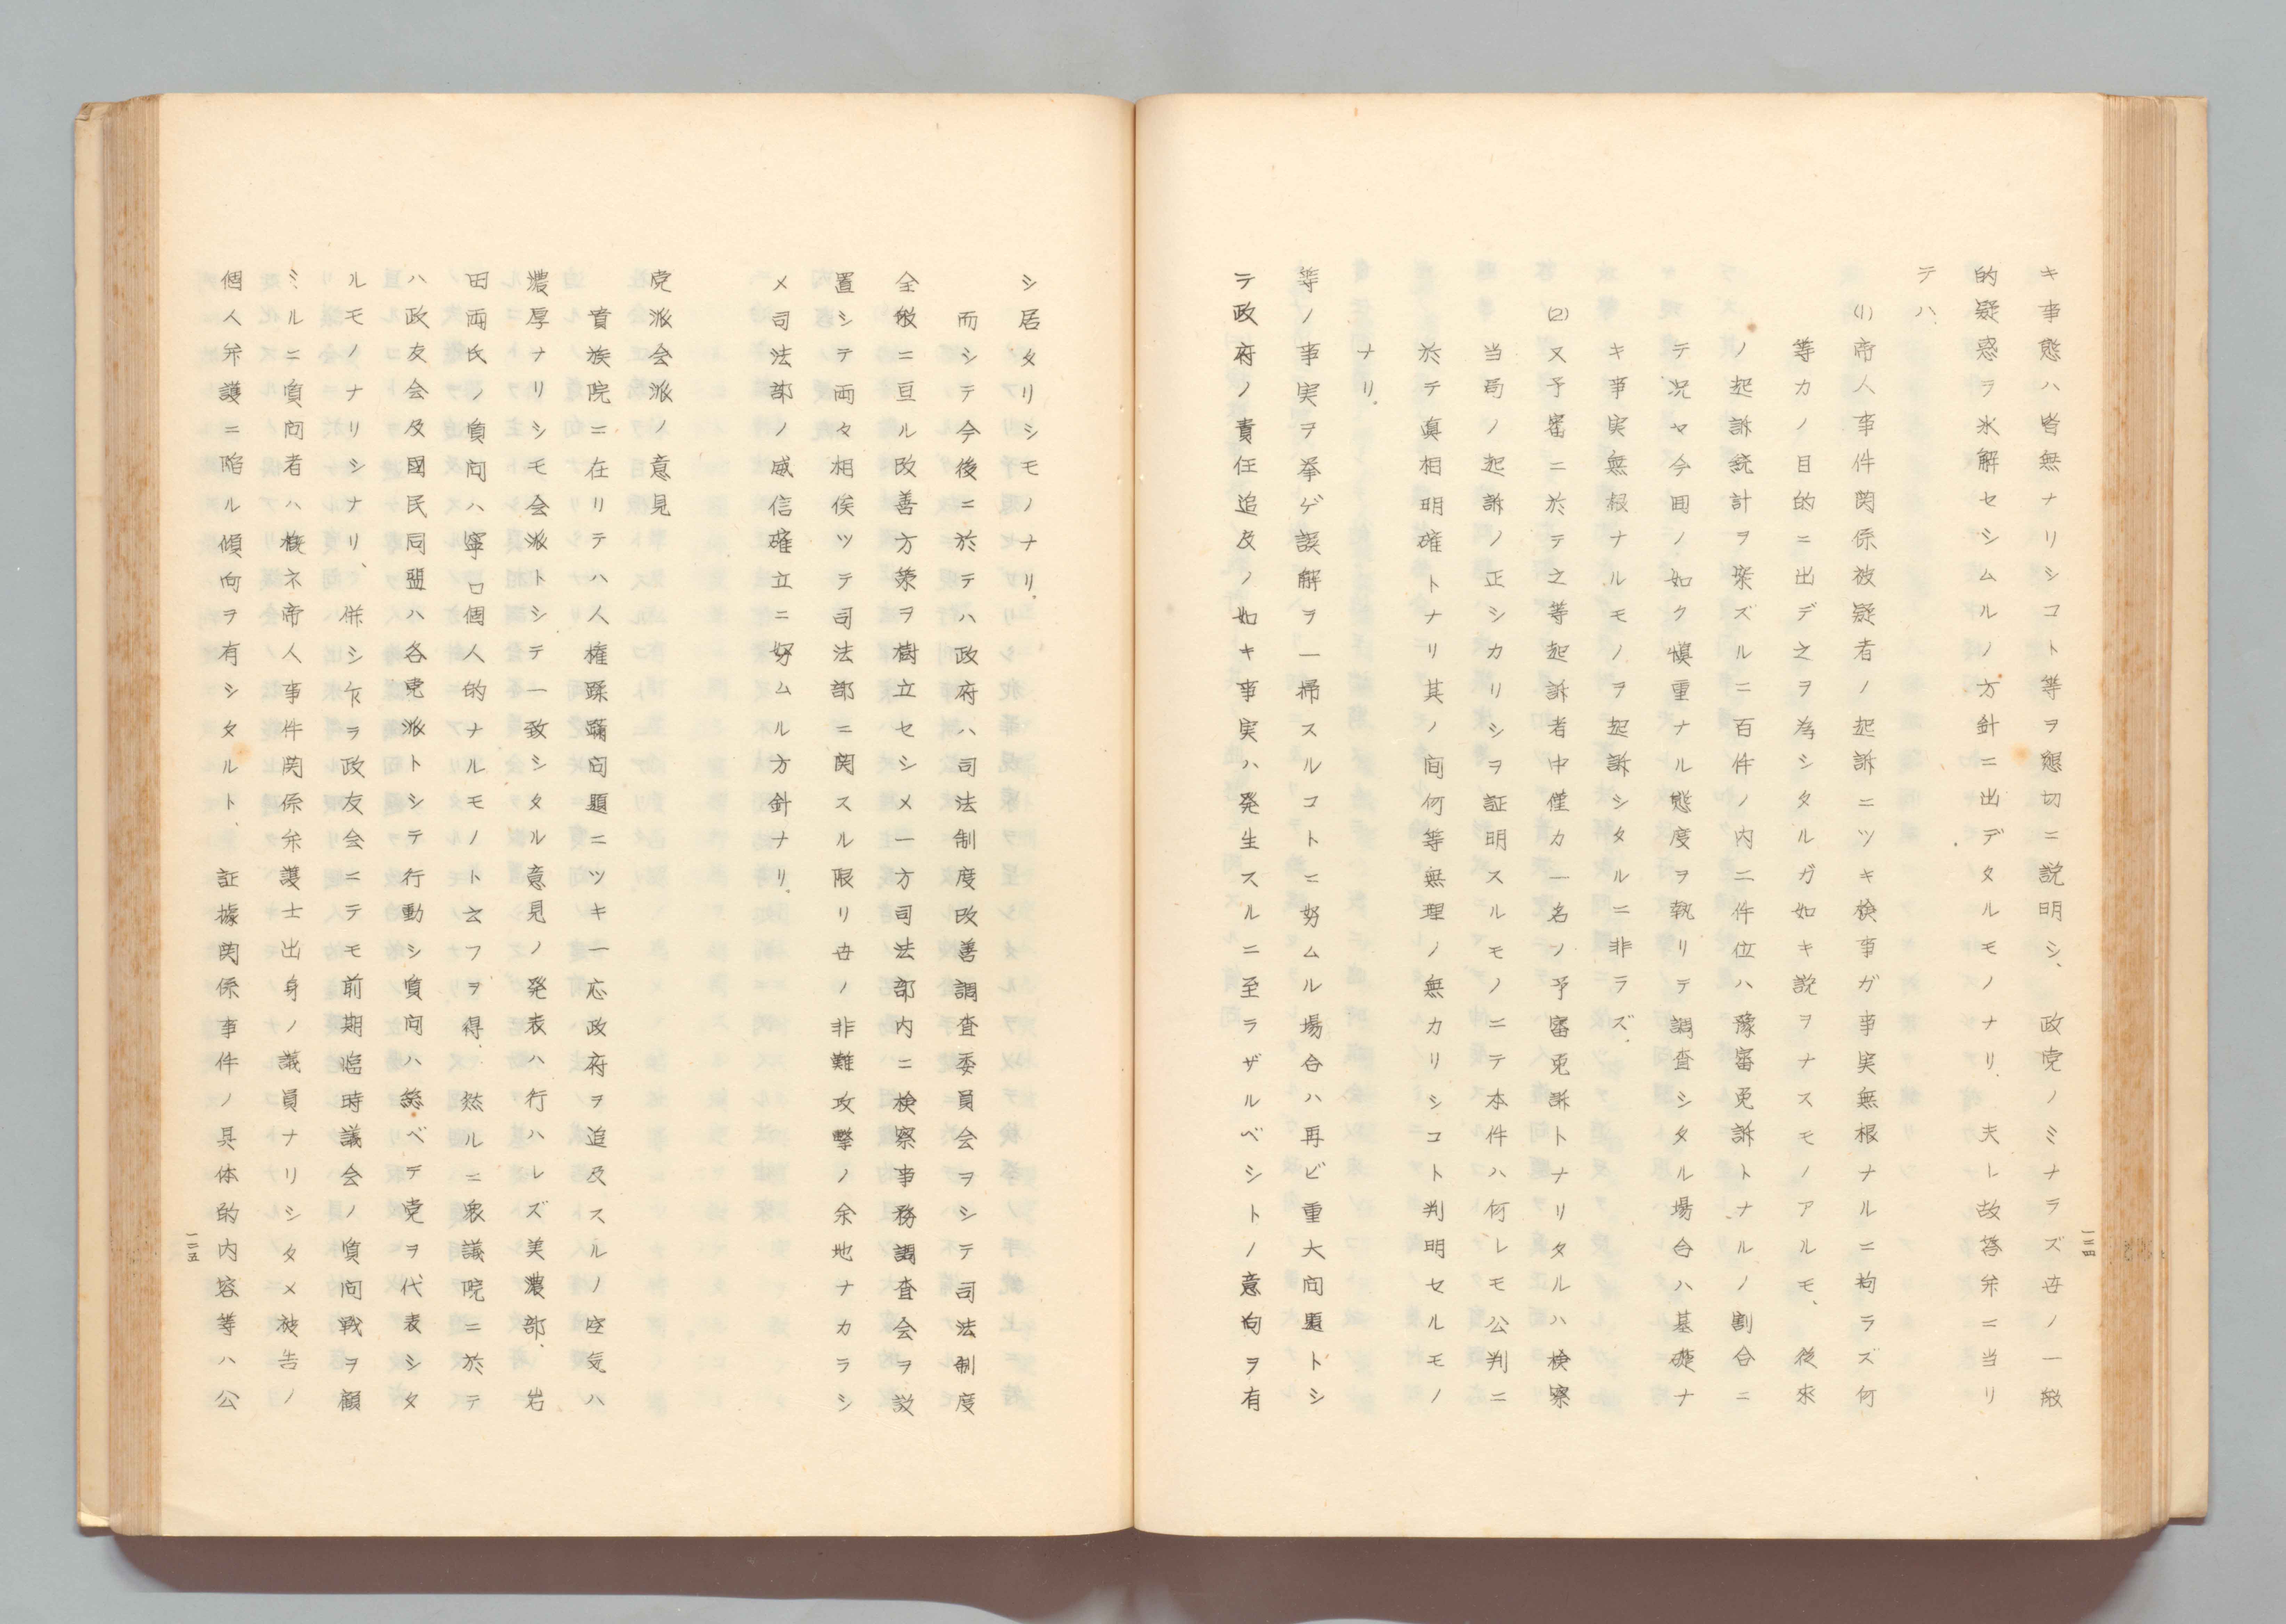 キ事態ハ皆無ナリシコト等ヲ懇切ニ説明シ、政党ノミナラズ世ノ一般
的疑惑ヲ氷解セシムルノ方針ニ出デタルモノナリ、夫レ故答弁ニ当リ
テハ、
(1)帝人事件関係被疑者ノ起訴ニツキ検事ガ事実無根ナルニ拘ラズ何
等カノ目的ニ出デ之ヲ為シタルガ如キ説ヲナスモノアルモ、従来
ノ起訴統計ヲ案ズルニ百件ノ内二件位ハ豫審免訴トナルノ割合ニ
テ況ヤ今回ノ如ク慎重ナル態度ヲ執リテ調査シタル場合ハ基礎ナ
キ事実無根ナルモノヲ起訴シタルニ非ラズ、
(2)又予審ニ於テ之等起訴者中僅カ一名ノ予審免訴トナリタルハ検察
当局ノ起訴ノ正シカリシヲ証明スルモノニテ本件ハ何レモ公判ニ
於テ真相明確トナリ其ノ間何等無理ノ無カリシコト判明セルモノ
ナリ、
等ノ事実ヲ挙ゲ誤解ヲ一掃スルコトニ努ムル場合ハ再ビ重大問題トシ
テ政府ノ責任追及ノ如キ事実ハ発生スルニ至ラザルベシトノ意向ヲ有
一二四
シ居タリシモノナリ、
而シテ今後ニ於テハ政府ハ司法制度改善調査委員会ヲシテ司法制度
全般ニ亘ル改善方策ヲ樹立セシメ一方司法部内ニ検察事務調査会ヲ設
置シテ両々相俟ツテ司法部ニ関スル限リ世ノ非難攻撃ノ余地ナカラシ
メ司法部ノ威信確立ニ努ムル方針ナリ、
党派会派ノ意見
貴族院ニ在リテハ人権蹂躙問題ニツキ一応政府ヲ追及スルノ空気ハ
濃厚ナリシモ会派トシテ一致シタル意見ノ発表ハ行ハレズ美濃部、岩
田両氏ノ質問ハ寧ロ個人的ナルモノト云フヲ得、然ルニ衆議院ニ於テ
ハ政友会及国民同盟ハ各党派トシテ行動シ質問ハ総ベテ党ヲ代表シタ
ルモノナリシナリ、併シ乍ラ政友会ニテモ前期臨時議会ノ質問戦ヲ顧
ミルニ質問者ハ概ネ帝人事件関係弁護士出身ノ議員ナリシタメ被告ノ
個人弁護ニ陥ル傾向ヲ有シタルト、証據関係事件ノ具体的内容等ハ公
一二五